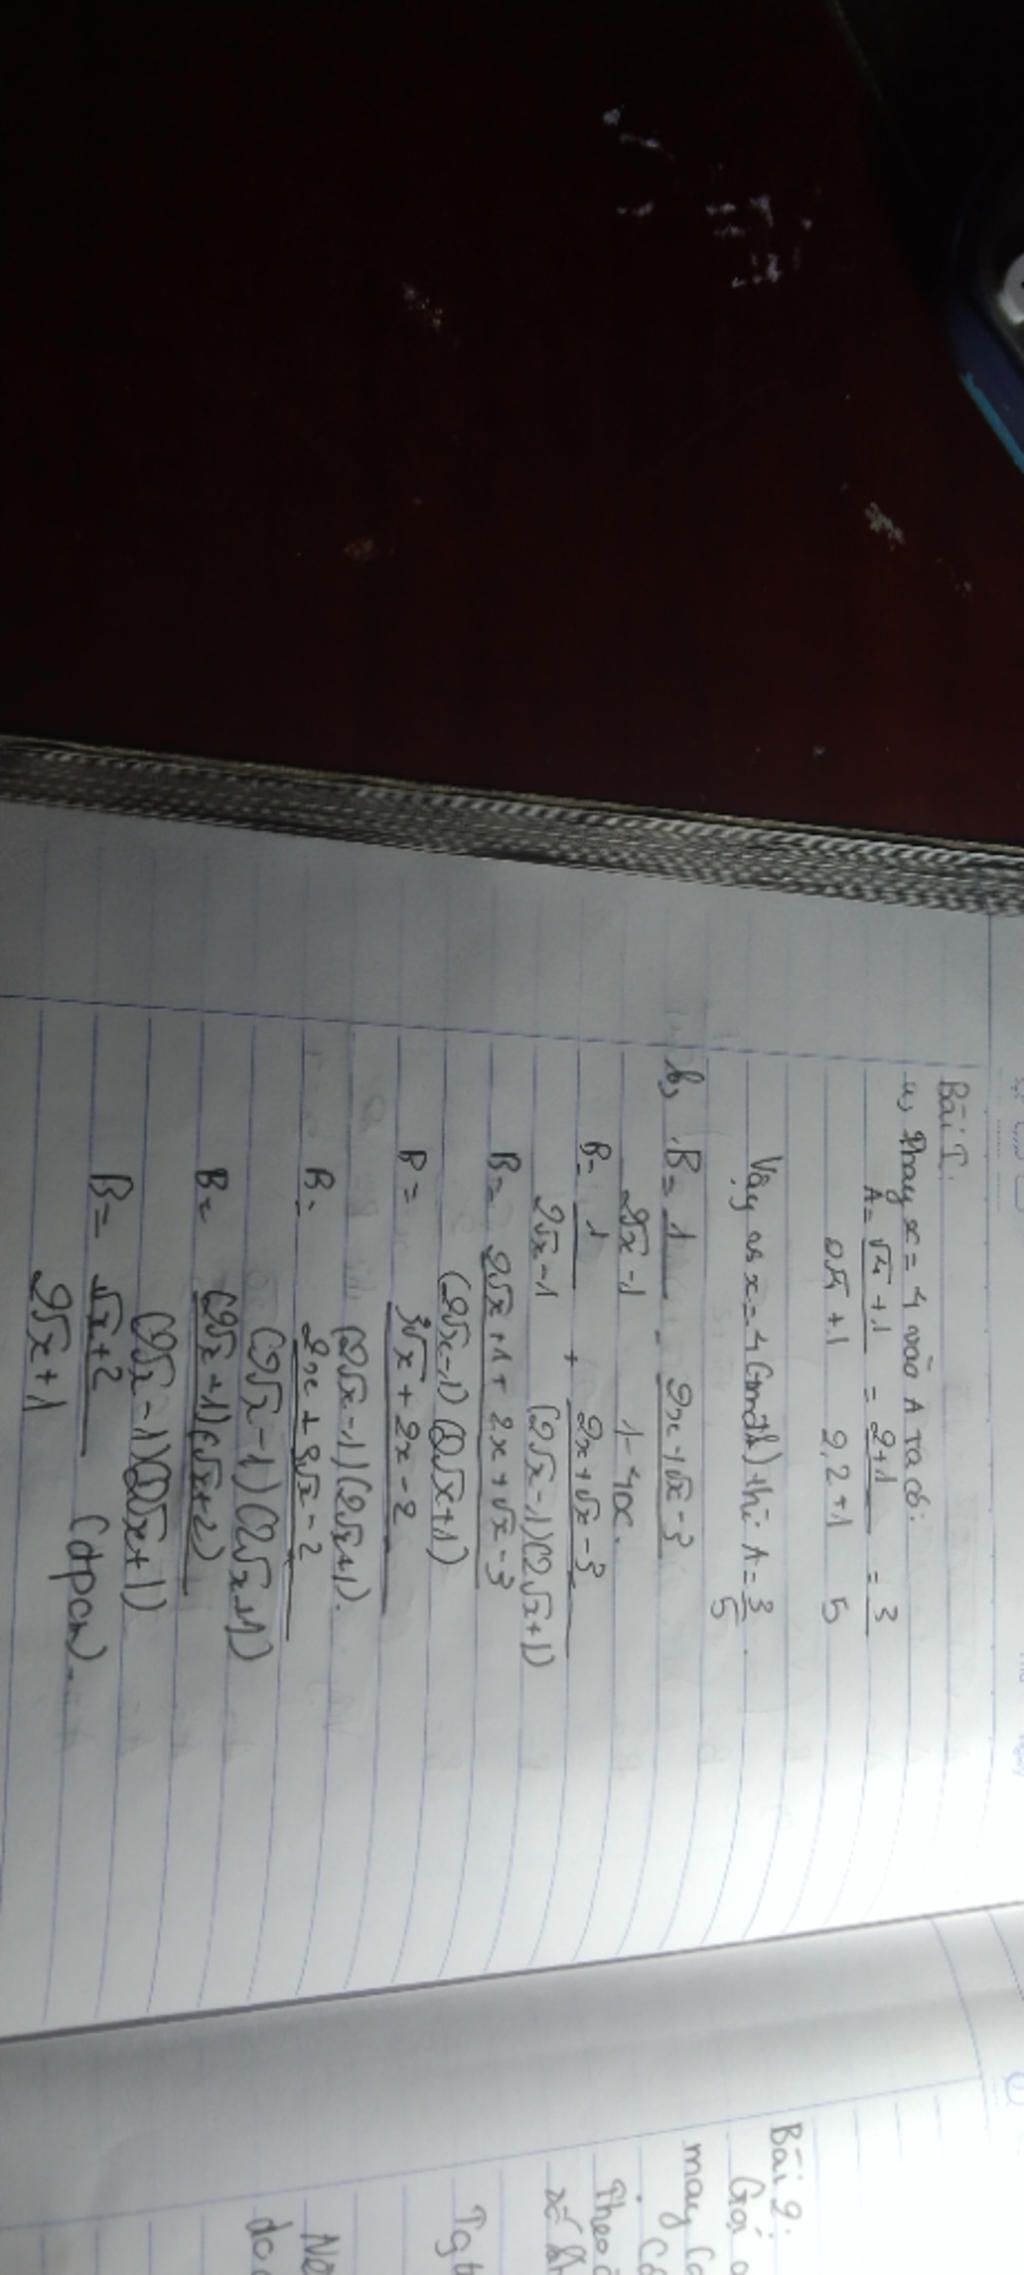 Bài I:
a, Thay x = 4 vào A ta có:
A = √4 + 1 / 2√4 + 1 = 2+1 / 2.2+1 = 3 / 5
Vậy x = 4 (tmđk) thì A = 3/5.
b, B = 1 / 2√x - 1 - 2x + √x - 3 / 1 - 4x.
B = 1 / 2√x - 1 + 2x + √x - 3 / (2√x - 1)(2√x + 1)
B = 2√x + 1 + 2x + √x - 3 / (2√x - 1)(2√x + 1)
B = 3√x + 2x - 2 / (2√x - 1)(2√x + 1).
B = 2x + 3√x - 2 / (2√x - 1)(2√x + 1)
B = (2√x - 1)(√x + 2) / (2√x - 1)(2√x + 1)
B = √x + 2 / 2√x + 1 (đpcm).
Bài 2:
Gọi
may
Theo